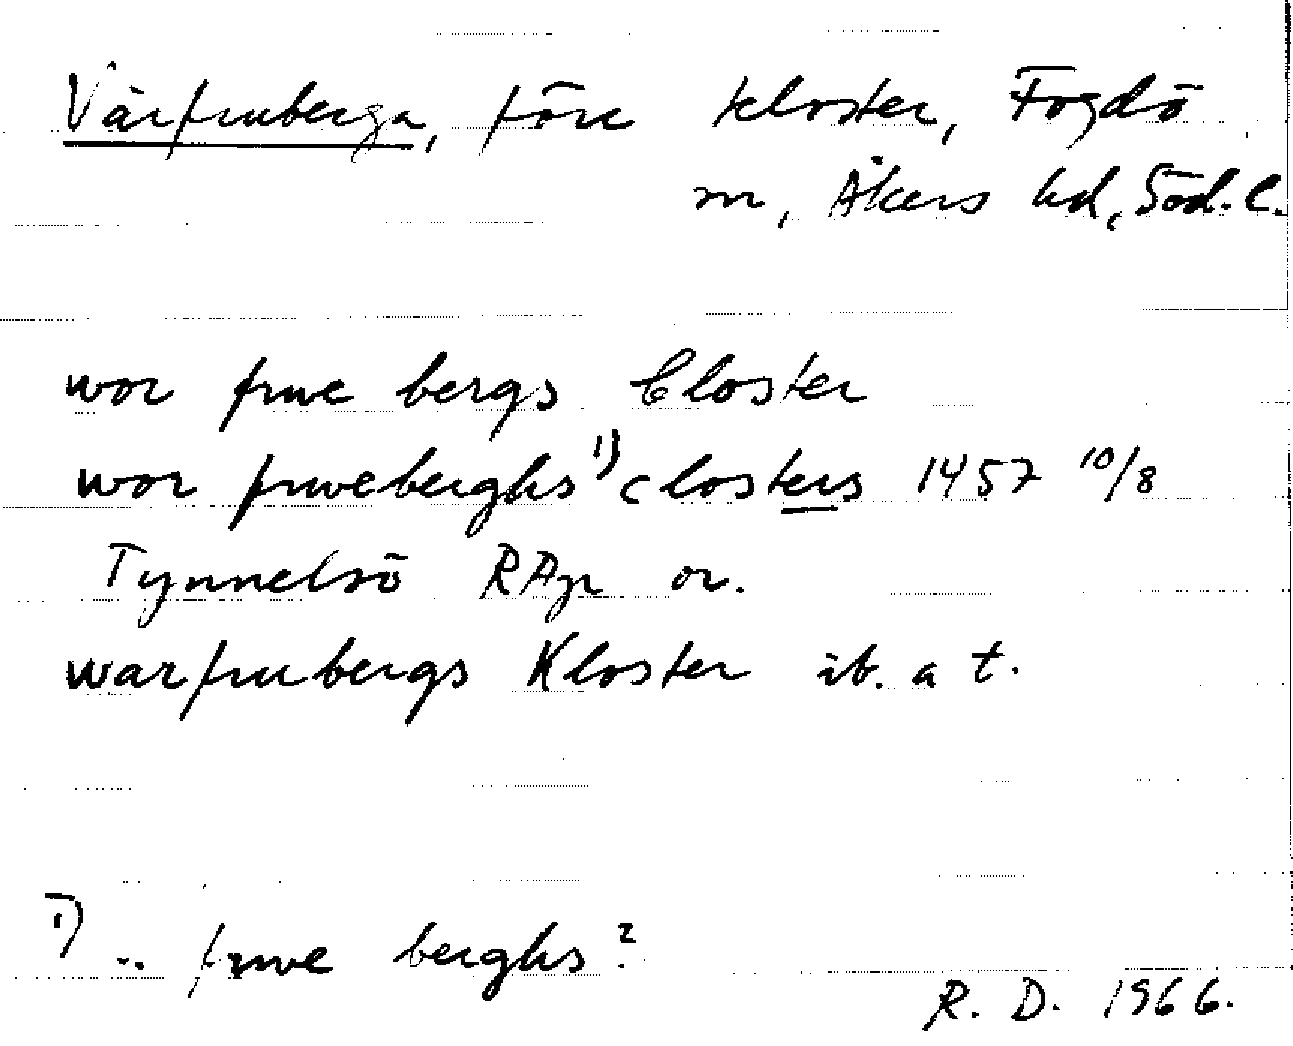 Vårfruberga, förr kloster, Fogdö
sn, Åkers hd, Söd. l.
wor frwe bergs Closter
wor frweberghs¹⁾ closters 1457 10/8
Tynnelsö RAp or.
warfrubergs Kloster ib. a t.
¹⁾ .. frwe berghs?
R. D. 1966.